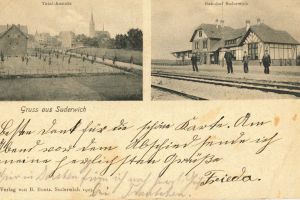 Total-Ansicht
Bahnhof Suderwich
Gruss aus Suderwich
Besten Dank für die schöne Karte. Am
Abend vor dem Abschied sende ich
meine herzlichsten Grüße
Frieda.
Verlag von B. Suderwich